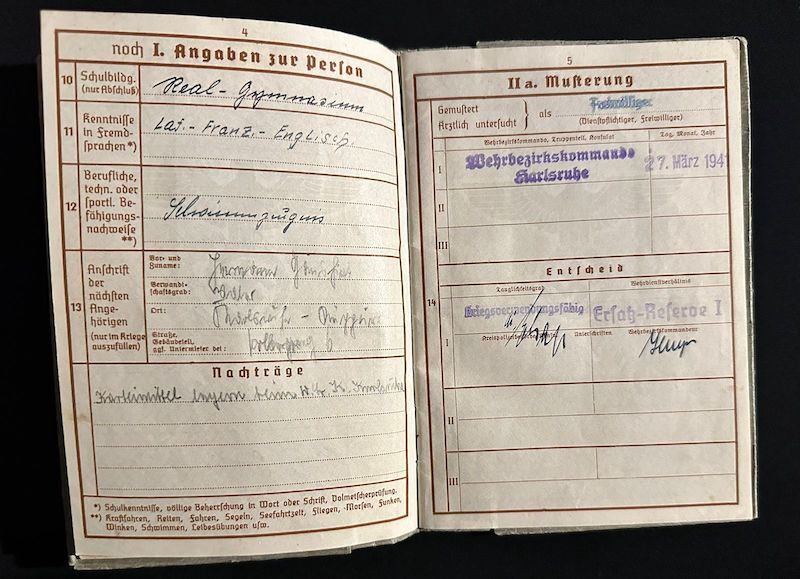 4
noch I. Angaben zur Person
10 Schulbildg.
(nur Abschluß)
Real-Gymnasium
11 Kenntnisse
in Fremd-
sprachen*)
Lat.- Franz.- Englisch.
12 Berufliche,
techn. oder
sportl. Be-
fähigungs-
nachweise
**)
Schwimmzeugnis
13 Anschrift
der
nächsten
Ange-
hörigen
(nur im Kriege
auszufüllen)
Vor- und
Zuname:
Verwandt-
schaftsgrad:
Vater
Ort:
Karlsruhe -
Straße,
Gebäudeteil,
ggf. Untermieter bei:
Nachträge
Karteimittel lagern beim W.B.K. Karlsruhe
*) Schulkenntnisse, völlige Beherrschung in Wort oder Schrift, Dolmetscherprüfung.
**) Kraftfahren, Reiten, Fahren, Segeln, Seefahrtzeit, Fliegen, -Morsen, Funken,
Winken, Schwimmen, Leibesübungen usw.
5
II a. Musterung
Gemustert
Ärztlich untersucht } als Freiwilliger
(Dienstpflichtiger, Freiwilliger)
Wehrbezirkskommando, Truppenteil, Konsulat
Tag, Monat, Jahr
I
Wehrbezirkskommando
Karlsruhe
27. März 194
II
III
Entscheid
14
Tauglichkeitsgrad
Wehrdienstverhältnis
I
Kriegsverwendungsfähig
Ersatz-Reserve I
Unterschriften
Wehrbezirkskommandeur
II
III